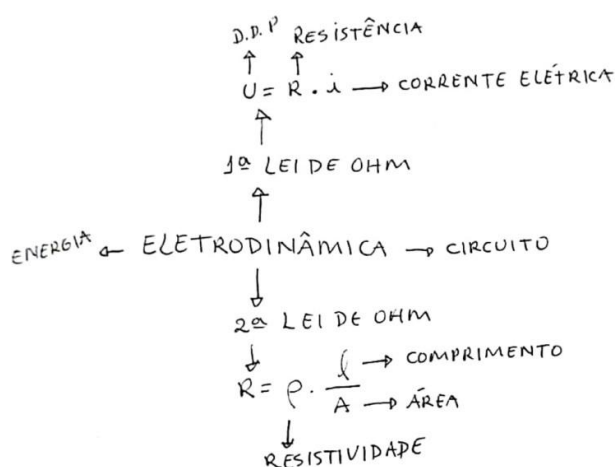 D.D.P RESISTÊNCIA
U = R . i → CORRENTE ELÉTRICA
1ª LEI DE OHM
ENERGIA ← ELETRODINÂMICA → CIRCUITO
2ª LEI DE OHM
R = ρ . l/A → COMPRIMENTO
→ ÁREA
RESISTIVIDADE